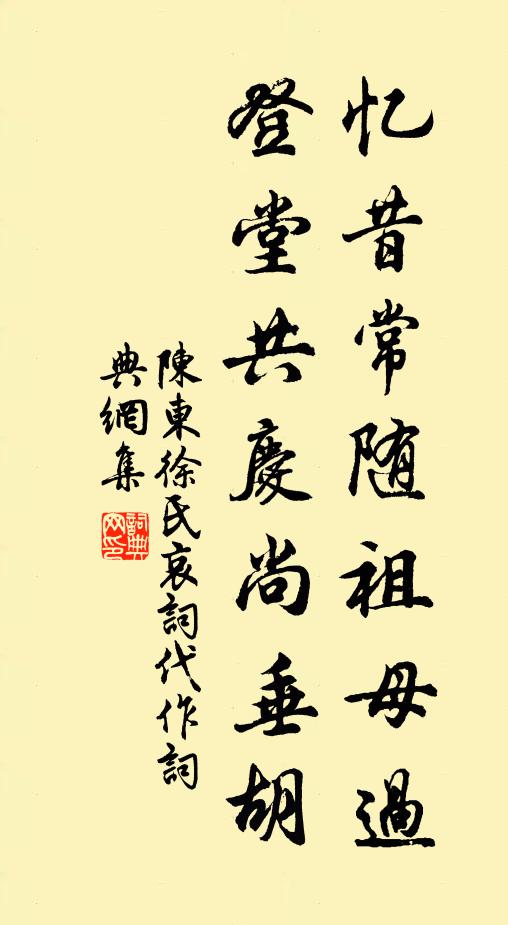 忆昔常随祖母過
登堂共慶尚垂胡
陳東徐氏哀詞代作詞
典網集
詞典网印